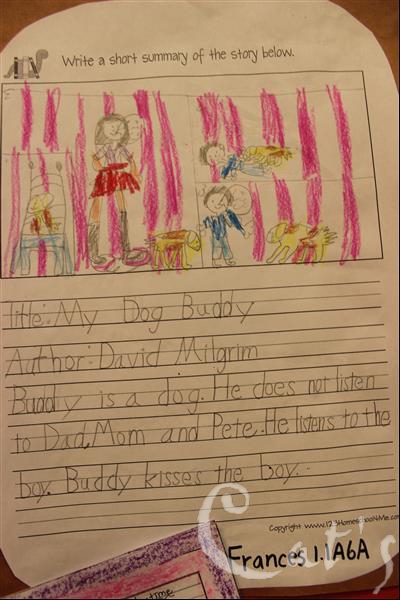 Write a short summary of the story below.
Title: My Dog Buddy
Author: David Milgrim
Buddy is a dog. He does not listen
to Dad, Mom and Pete. He listens to the
boy. Buddy kisses the boy.
Copyright www.123Homeschool4Me.com
Cat's
Frances 1.1A6A